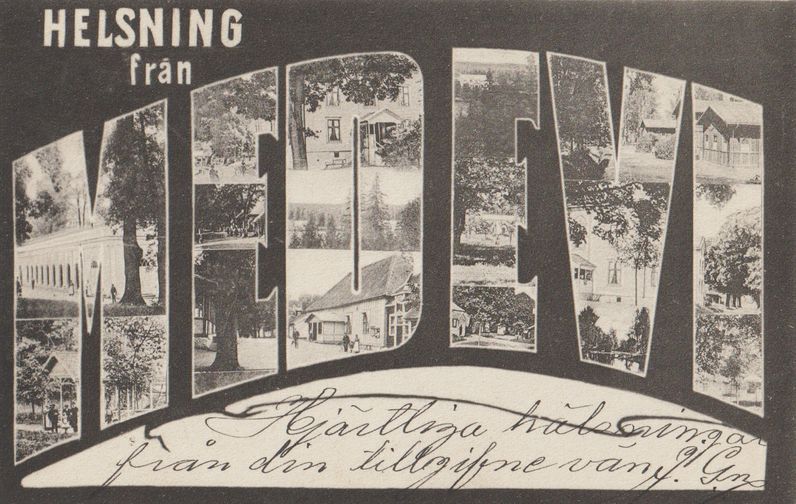 HELSNING
från
MEDEVI
Hjärtliga hälsningar
från din tillgifne vän